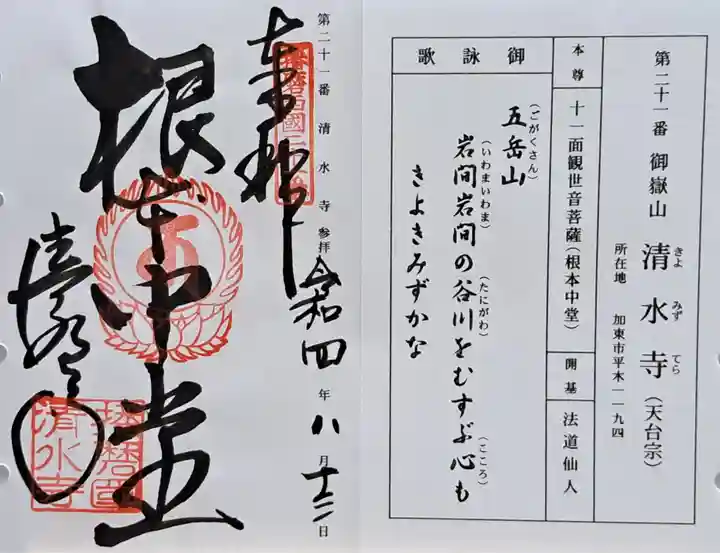 第二十一番 御嶽山 清水寺(天台宗)
きよ みず てら
所在地 加東市平木一一九四
本尊 十一面観世音菩薩(根本中堂) 開基 法道仙人
御詠歌
五岳山
(ごがくさん)
岩間岩間の谷川をむすぶ心も
(いわまいわま) (たにがわ) (こころ)
きよきみずかな
第二十一番 清水寺 参拝 令和四年八月十三日
奉拝
根本中堂
清水寺
播磨国
清水寺